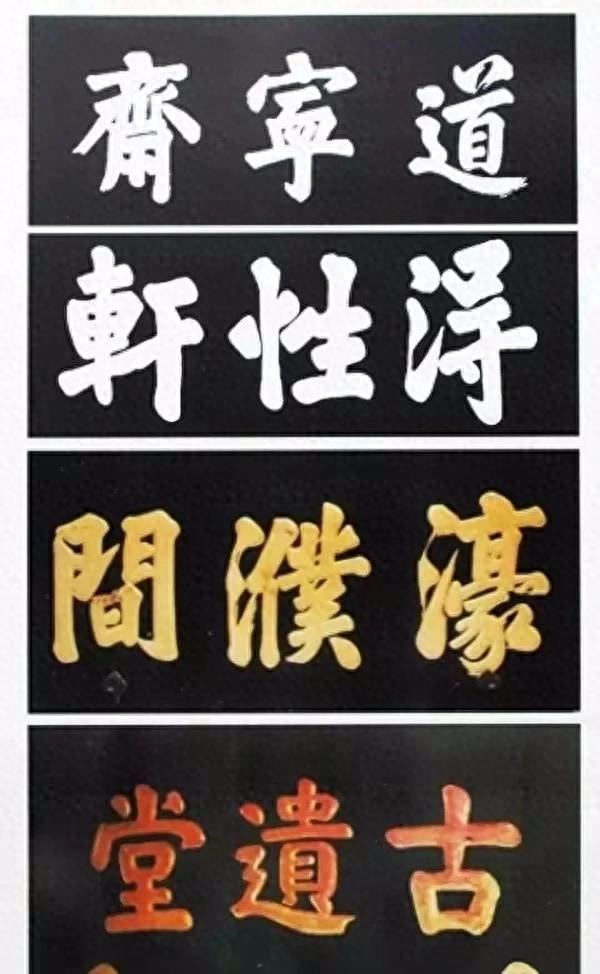 道寧齋
得性軒
濠濮間
古遺堂